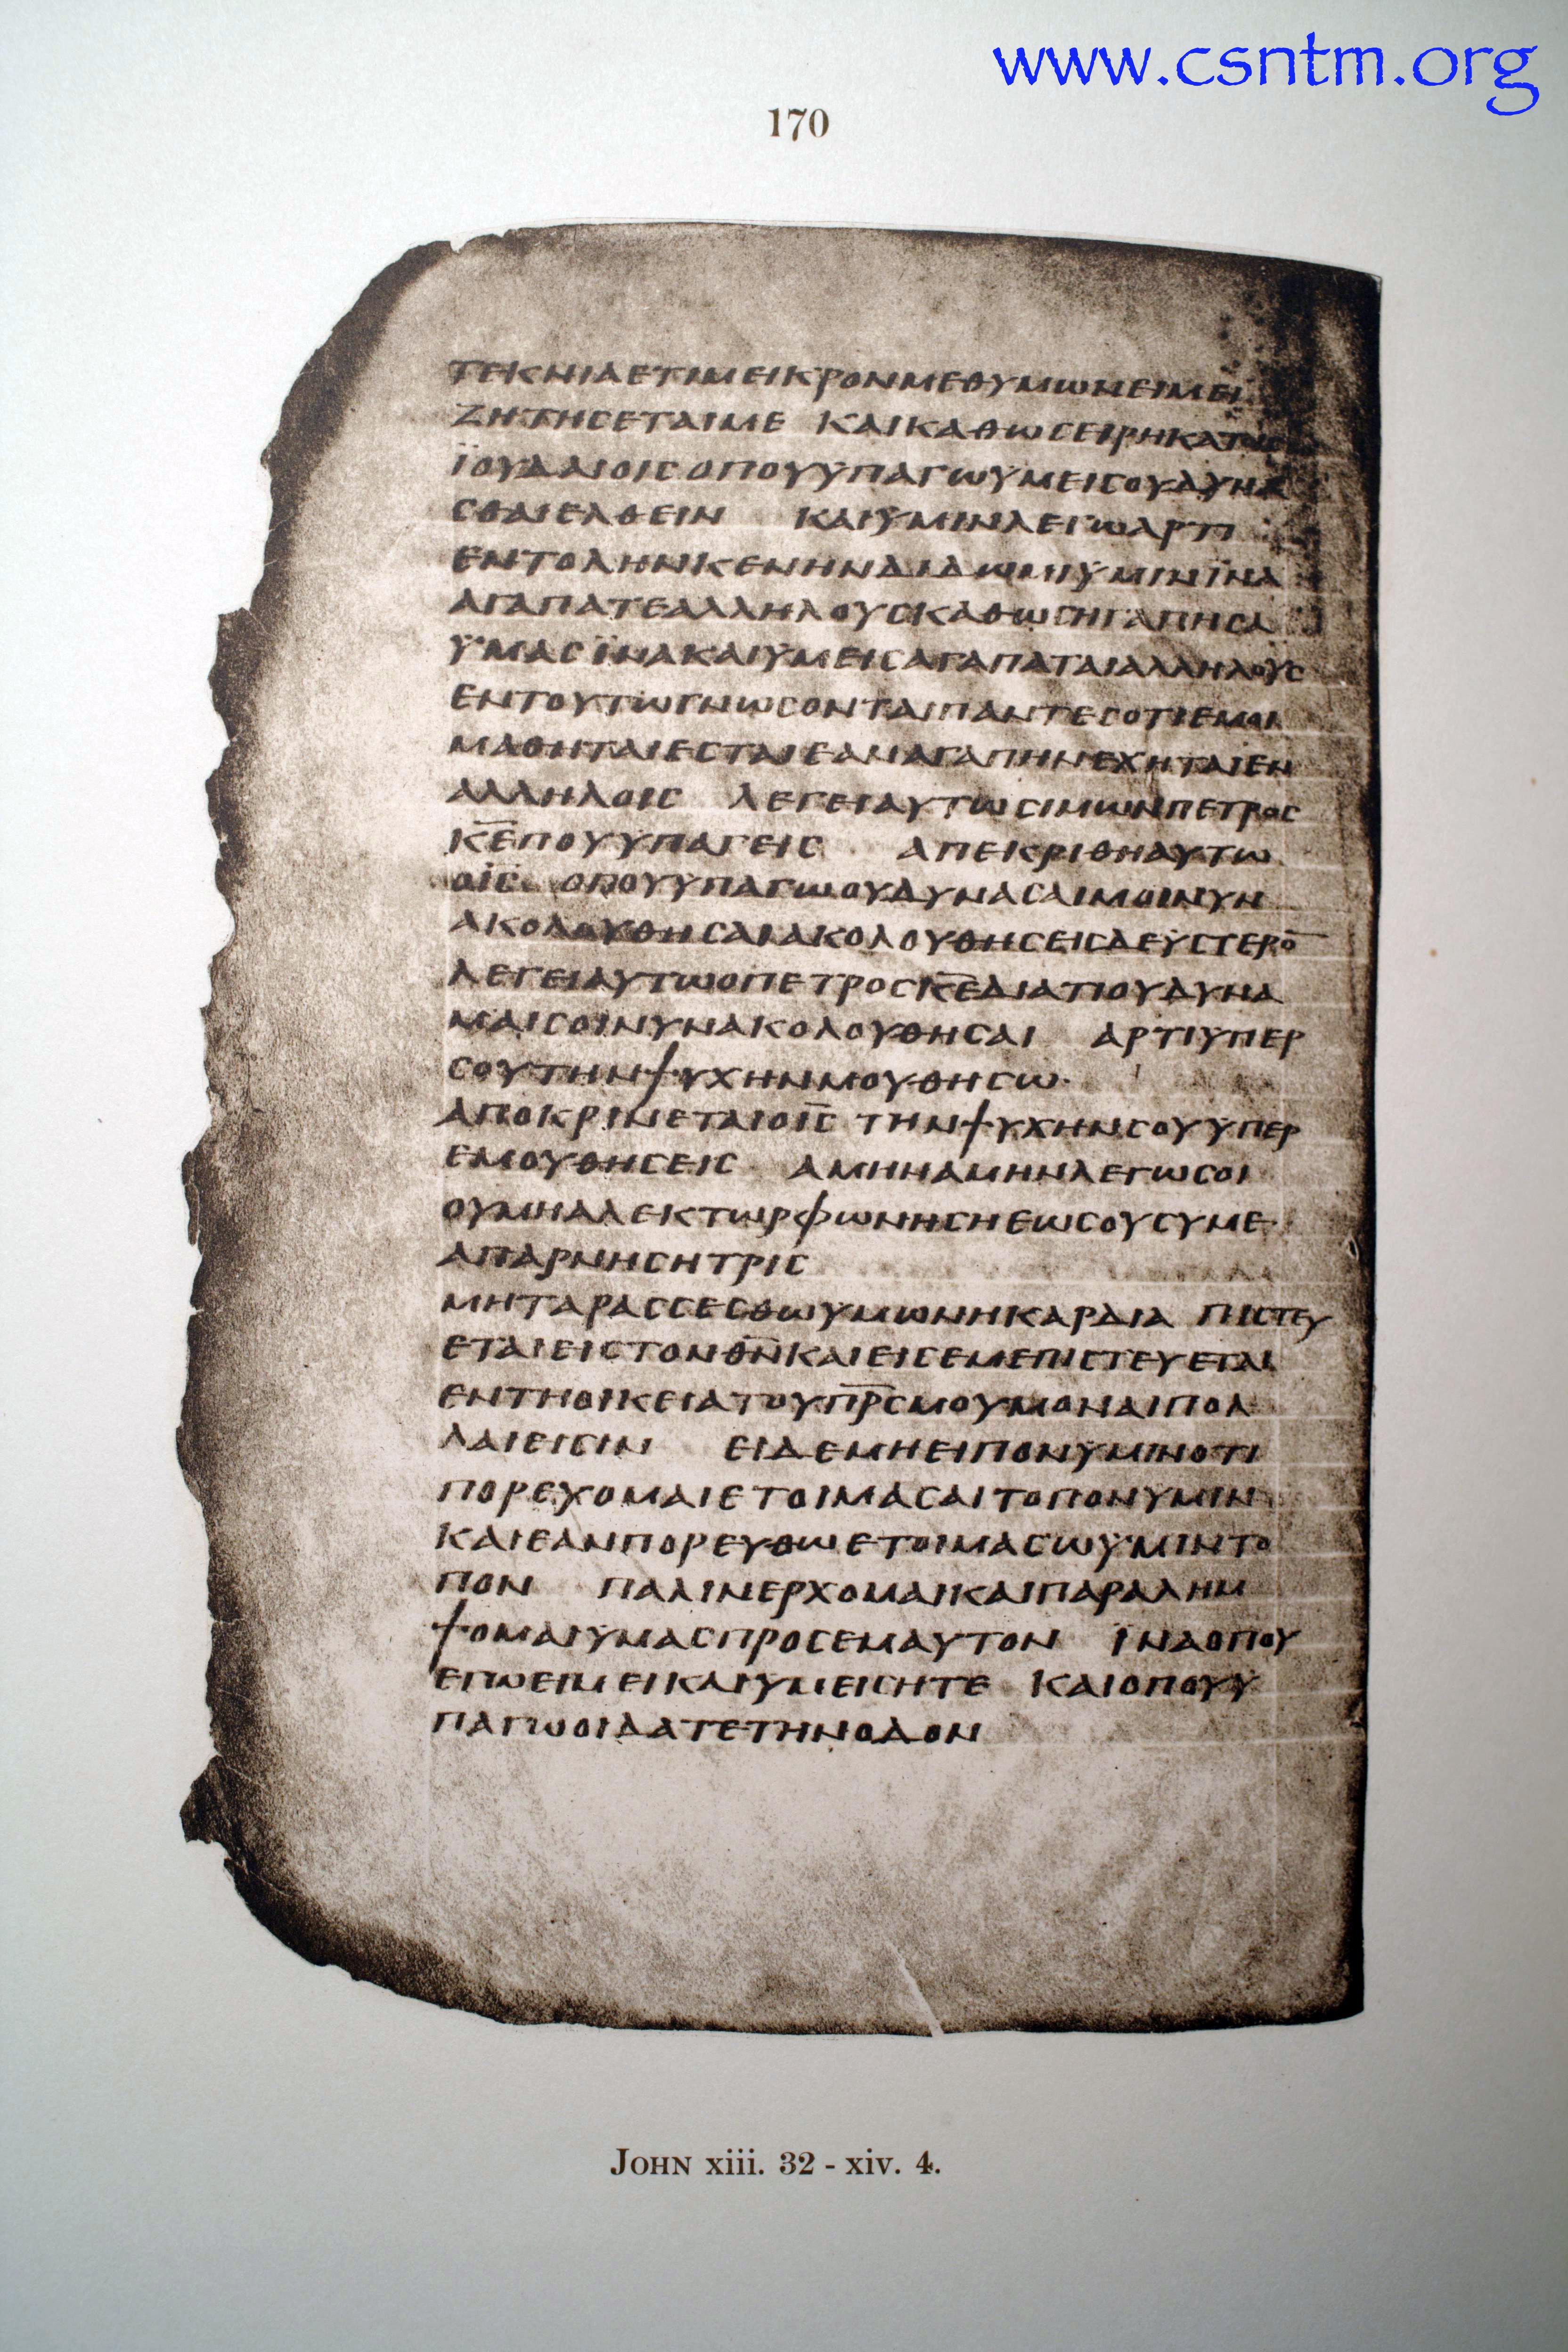 www.csntm.org
170
ΤΕΚΝΙΑΕΤΙΜΕΙΚΡΟΝΜΕΘΥΜΩΝΕΙΜΕΙ
ΖΗΤΗСΕΤΑΙΜΕ ΚΑΙΚΑΘΩСΕΙΡΗΚΑ
ΪΟΥΔΑΙΟΙСΟΠΟΥΥΠΑΓΩΫΜΕΙСΟΥΔΥΝΑ
СΘΑΙΕΛΘΕΙΝ ΚΑΙΫΜΙΝΛΕΓΩΑΡΤΙ
ΕΝΤΟΛΗΝΚΕΝΗΝΔΙΔΩΜΙΫΜΙΝΪΝΑ
ΑΓΑΠΑΤΕΑΛΛΗΛΟΥСΚΑΘΩСΗΓΑΠΗСΑ
ΫΜΑСΪΝΑΚΑΙΥΜΕΙСΑΓΑΠΑΤΑΙΑΛΛΗΛΟΥС
ΕΝΤΟΥΤΩΓΝΩСΟΝΤΑΙΠΑΝΤΕСΟΤΙΕΜΟΙ
ΜΑΘΗΤΑΙΕСΤΑΙΕΑΝΑΓΑΠΗΝΕΧΗΤΑΙΕΝ
ΑΛΛΗΛΟΙС ΛΕΓΕΙΑΥΤΩСΙΜΩΝΠΕΤΡΟС
Κ̅Ε̅ΠΟΥΥΠΑΓΕΙС ΑΠΕΚΡΙΘΗΑΥΤΩ
ΟΙ̅С̅ ΟΠΟΥΥΠΑΓΩΟΥΔΥΝΑСΑΙΜΟΙΝΥΝ
ΑΚΟΛΟΥΘΗСΑΙΑΚΟΛΟΥΘΗСΕΙСΔΕΫСΤΕΡΟ̅
ΛΕΓΕΙΑΥΤΩΟΠΕΤΡΟСΚ̅Ε̅ΔΙΑΤΙΟΥΔΥΝΑ
ΜΑΙСΟΙΝΥΝΑΚΟΛΟΥΘΗСΑΙ ΑΡΤΙΫΠΕΡ
СΟΥΤΗΝΨΥΧΗΝΜΟΥΘΗСΩ
ΑΠΟΚΡΙΝΕΤΑΙΟΙ̅С̅ ΤΗΝΨΥΧΗΝСΟΥΫΠΕΡ
ΕΜΟΥΘΗСΕΙС ΑΜΗΝΑΜΗΝΛΕΓΩСΟΙ
ΟΥΜΗΑΛΕΚΤΩΡΦΩΝΗСΗΕΩСΟΥСΥΜΕ
ΑΠΑΡΝΗСΗΤΡΙС
ΜΗΤΑΡΑССΕСΘΩΫΜΩΝΗΚΑΡΔΙΑ ΠΙСΤΕΥ
ΕΤΑΙΕΙСΤΟΝΘ̅Ν̅ΚΑΙΕΙСΕΜΕΠΙСΤΕΥΕΤΑΙ
ΕΝΤΗΟΙΚΕΙΑΤΟΥΠ̅Ρ̅СΜΟΥΜΟΝΑΙΠΟΛ
ΛΑΙΕΙСΙΝ ΕΙΔΕΜΗΕΙΠΟΝΫΜΙΝΟΤΙ
ΠΟΡΕΥΟΜΑΙΕΤΟΙΜΑСΑΙΤΟΠΟΝΥΜΙΝ
ΚΑΙΕΑΝΠΟΡΕΥΘΩΕΤΟΙΜΑСΩΫΜΙΝΤΟ
ΠΟΝ ΠΑΛΙΝΕΡΧΟΜΑΙΚΑΙΠΑΡΑΛΗΜ
ΨΟΜΑΙΫΜΑСΠΡΟСΕΜΑΥΤΟΝ ΪΝΑΟΠΟΥ
ΕΓΩΕΙΜΕΙΚΑΙΫΜΕΙСΗΤΕ ΚΑΙΟΠΟΥΫ
ΠΑΓΩΟΙΔΑΤΕΤΗΝΟΔΟΝ
JOHN xiii. 32 - xiv. 4.